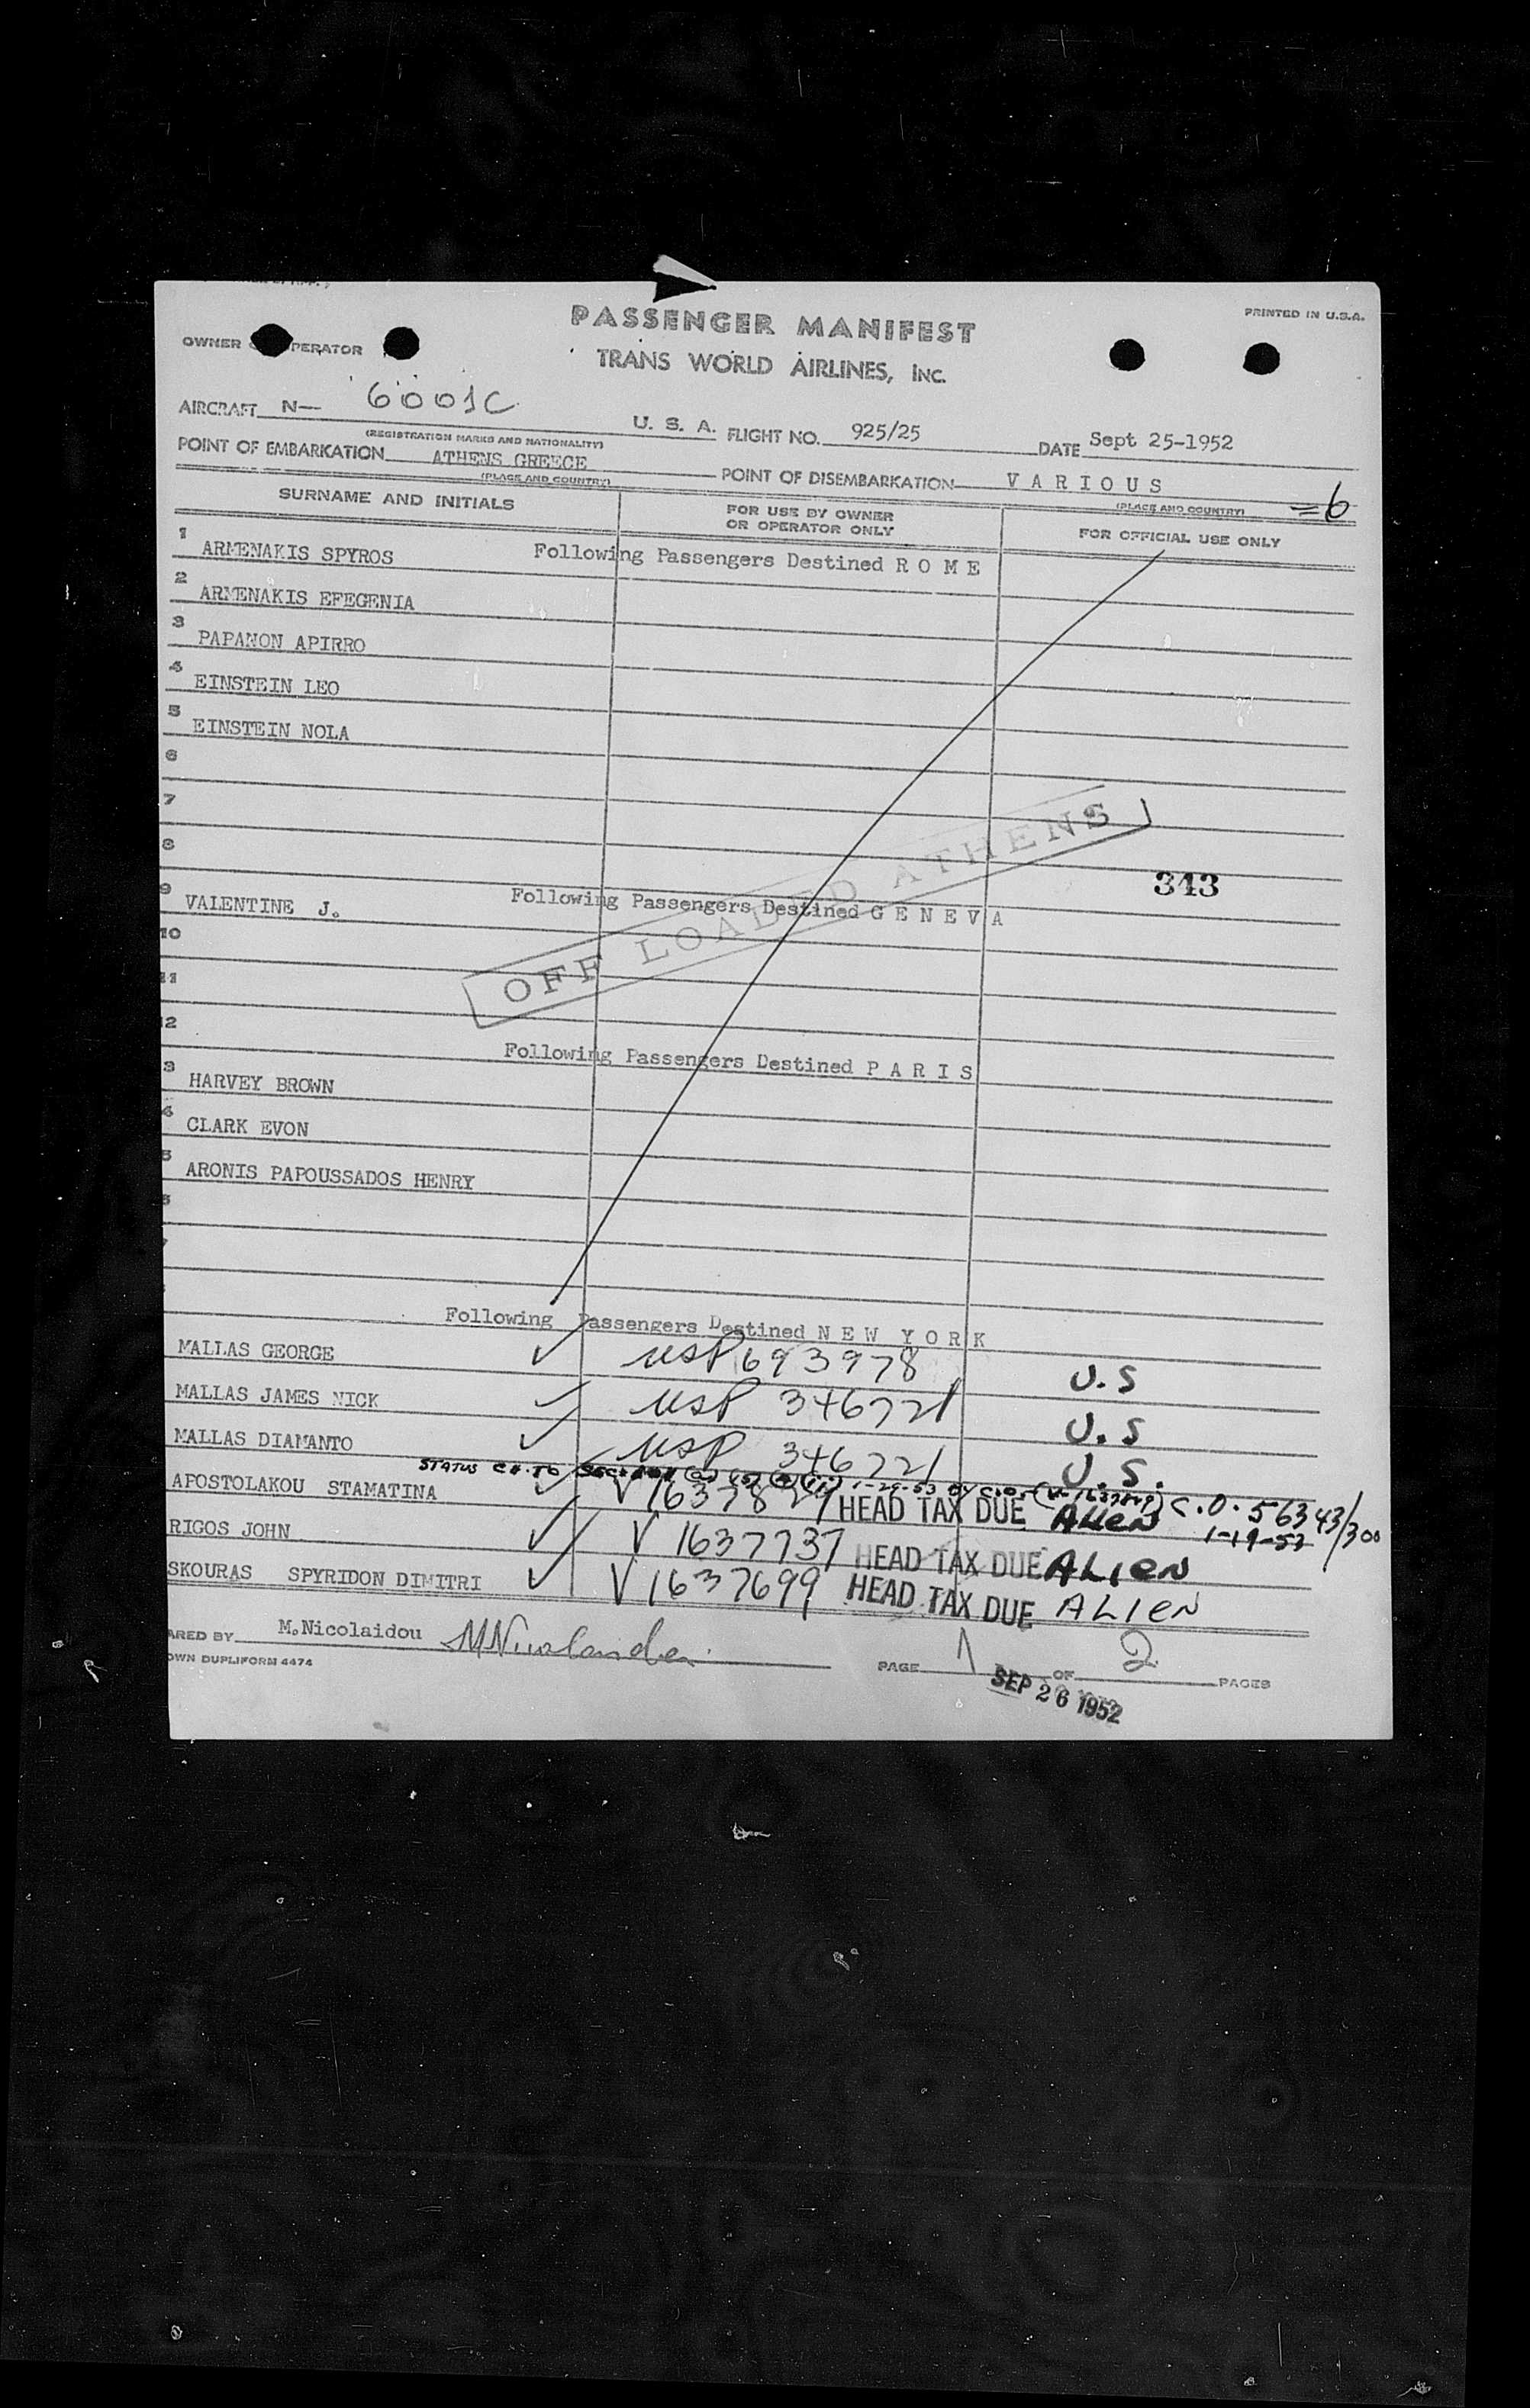 PASSENGER MANIFEST
PRINTED IN U.S.A.
OWNER PERATOR
TRANS WORLD AIRLINES, INC.
AIRCRAFT N— 6001C U. S. A. FLIGHT NO. 925/25 DATE Sept 25-1952
(REGISTRATION MARKS AND NATIONALITY)
POINT OF EMBARKATION ATHENS GREECE POINT OF DISEMBARKATION V A R I O U S
(PLACE AND COUNTRY) (PLACE AND COUNTRY) =6
SURNAME AND INITIALS FOR USE BY OWNER OR OPERATOR ONLY FOR OFFICIAL USE ONLY
1 ARMENAKIS SPYROS Following Passengers Destined R O M E
2 ARMENAKIS EFEGENIA
3 PAPANON APIRRO
4 EINSTEIN LEO
5 EINSTEIN NOLA
6
7
8
343
9 VALENTINE J. Following Passengers Destined G E N E V A
OFF LOADED ATHENS
10
11
12
Following Passengers Destined P A R I S
3 HARVEY BROWN
4 CLARK EVON
5 ARONIS PAPOUSSADOS HENRY
Following Passengers Destined N E W Y O R K
MALLAS GEORGE ✓ USP 693978 U.S
MALLAS JAMES NICK ✓ USP 346721 U.S
MALLAS DIAMANTO ✓ USP 346721 U.S.
STATUS CH. TO 1-29-53 BY C.O.
APOSTOLAKOU STAMATINA ✓ V HEAD TAX DUE Alien C.O. 56343/300
1-19-53
RIGOS JOHN ✓ V 1637737 HEAD TAX DUE ALIEN
SKOURAS SPYRIDON DIMITRI ✓ V 1637699 HEAD TAX DUE ALIEN
ARED BY M.Nicolaidou
OWN DUPLIFORM 4474 PAGE 1 OF 2 PAGES
SEP 26 1952